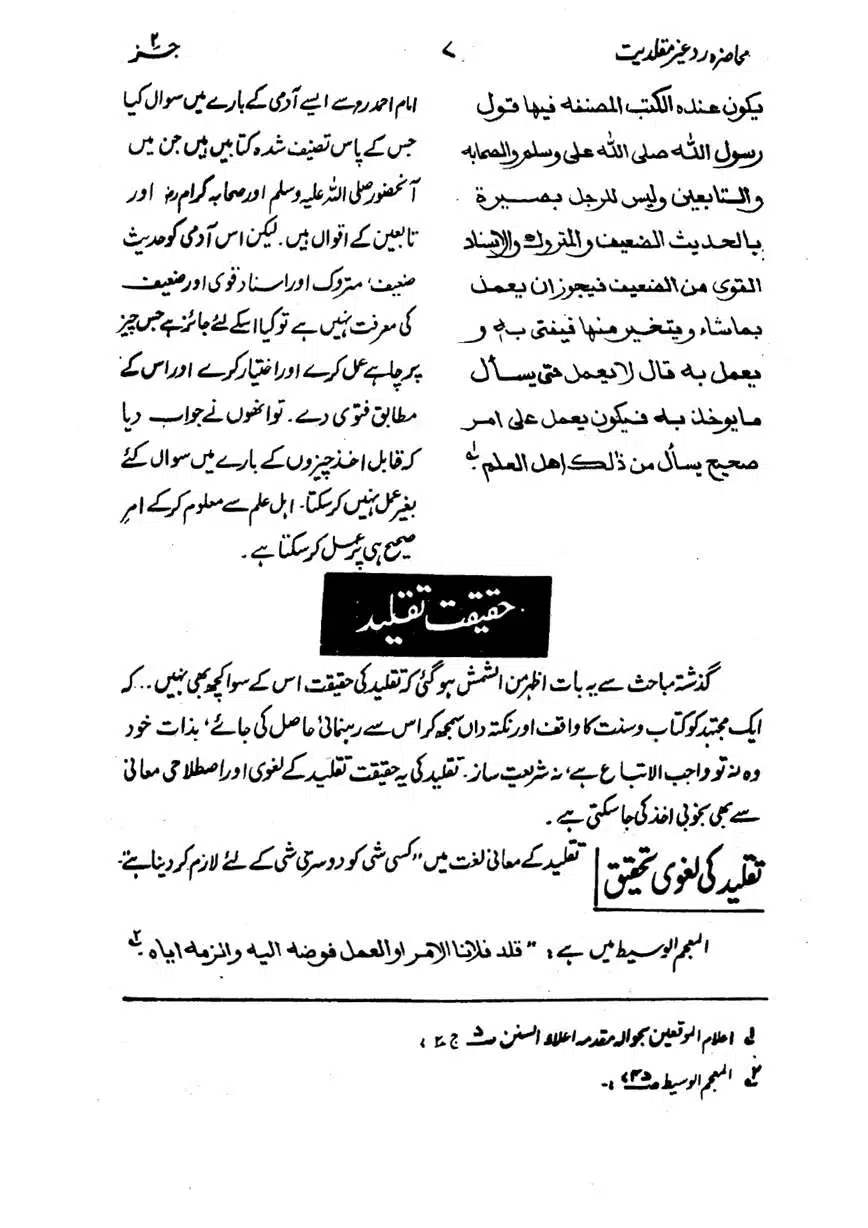 محاضرہ رد غیر مقلدیت
۷
جز ۲
یکون عنده الکتب المصنفه فیها قول
رسول الله صلی الله علی وسلم والصحابه
والتابعین ولیس للرجل بصیرة
بالحدیث الضعیف والمتروك والاسناد
القوی من الضعیف فیجوز ان یعمل
بماشاء ویتخیر منها فیفتی به و
یعمل به قال لا یعمل حتی یسأل
مایوخذ به فیکون یعمل علی امر
صحیح یسأل من ذالك اهل العلم ۱ے
امام احمد رو سے ایسے آدمی کے بارے میں سوال کیا
جس کے پاس تصنیف شدہ کتابیں ہیں جن میں
آنحضور صلی اللہ علیہ وسلم اور صحابہ کرام رض اور
تابعین کے اقوال ہیں۔ لیکن اس آدمی کو حدیث
ضعیف، متروک اور اسناد قوی اور ضعیف
کی معرفت نہیں ہے تو کیا اسکے لئے جائز ہے جس چیز
پر چاہے عمل کرے اور اختیار کرے اور اس کے
مطابق فتوی دے۔ تو انھوں نے جواب دیا
کہ قابل اخذ چیزوں کے بارے میں سوال کئے
بغیر عمل نہیں کر سکتا۔ اہل علم سے معلوم کر کے امرِ
صحیح ہی پر عمل کر سکتا ہے۔
حقیقت تقلید
گذشتہ مباحث سے یہ بات اظہر من الشمش ہو گئی کہ تقلید کی حقیقت اس کے سوا کچھ بھی نہیں... کہ
ایک مجتہد کو کتاب و سنت کا واقف اور نکتہ داں سمجھ کر اس سے رہنمائی حاصل کی جائے، بذات خود
وہ نہ تو واجب الاتباع ہے، نہ شریعت ساز۔ تقلید کی یہ حقیقت تقلید کے لغوی اور اصطلاحی معانی
سے بھی بخوبی اخذ کی جا سکتی ہے۔
تقلید کی لغوی تحقیق
تقلید کے معانی لغت میں "کسی شی کو دوسری شی کے لئے لازم کر دینا ہے۔
المعجم الوسیط میں ہے: "قلد فلانا الامر او العمل فوضه الیه والزمه ایاه ۲ے
۱ے اعلام الموقعین بحوالہ مقدمہ اعلاء السنن ص۵ ج ۲،
۲ے المعجم الوسیط ص۷۵۴،۔